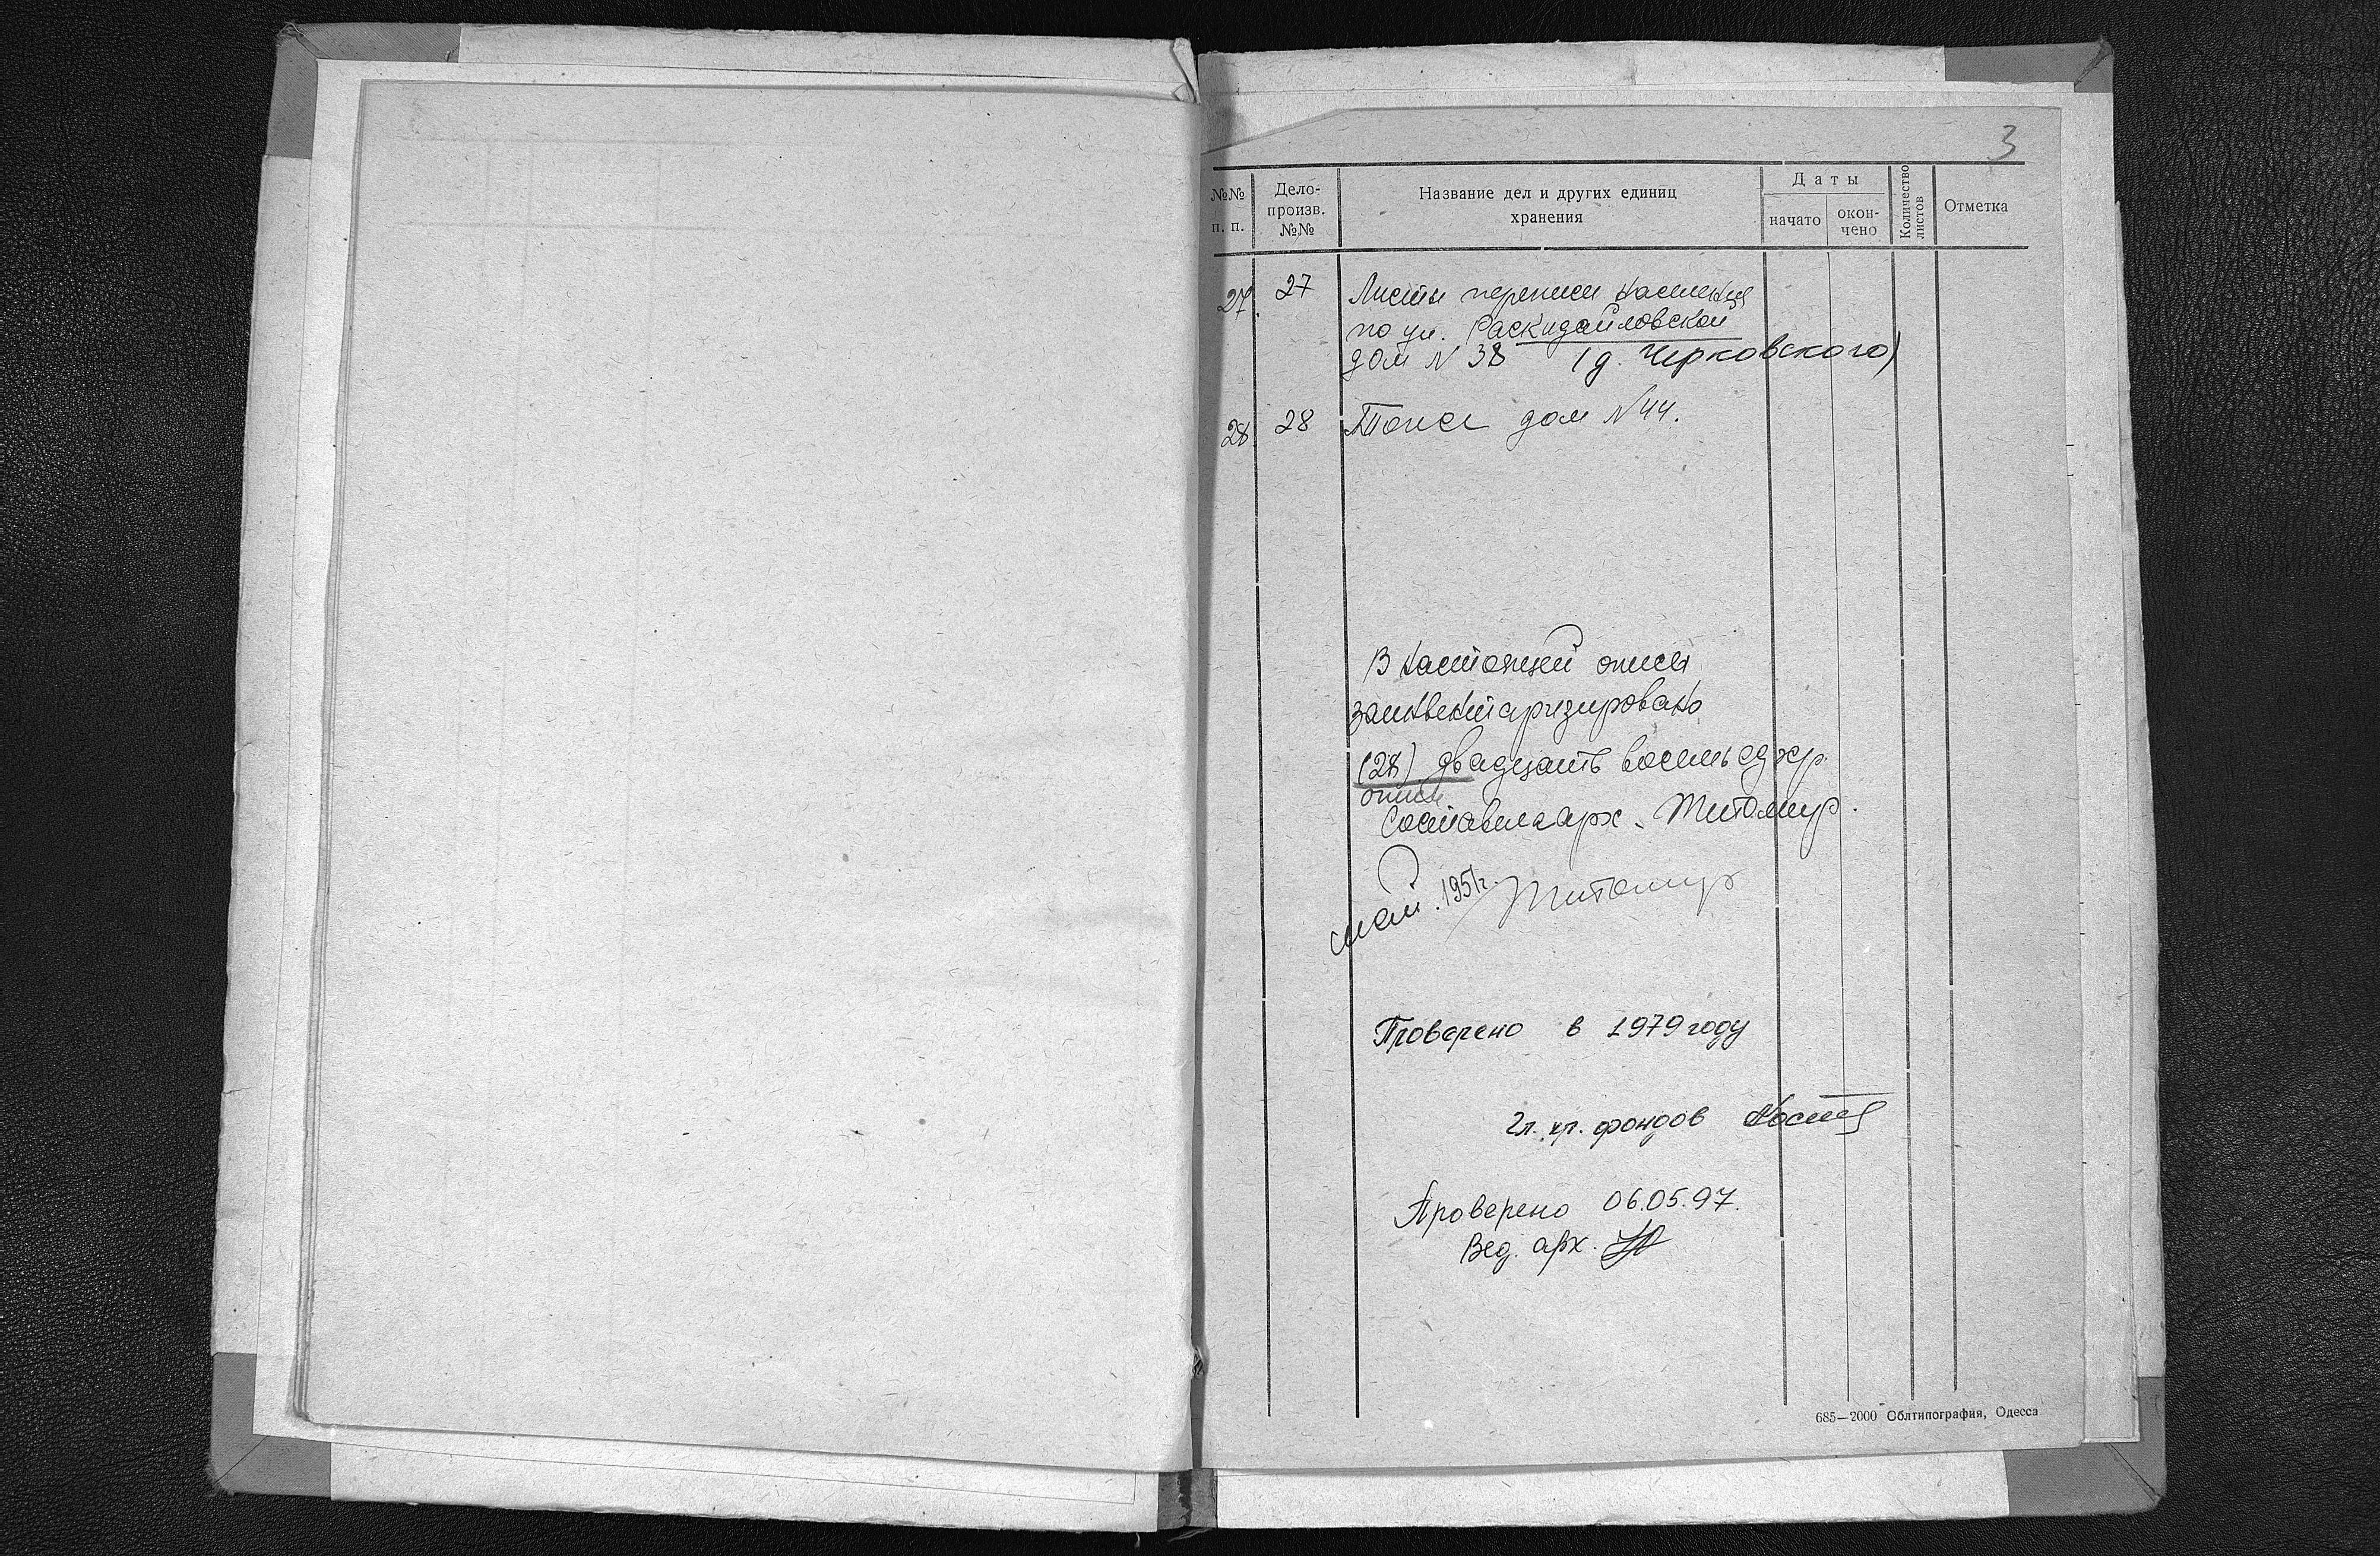 3
№№ п. п.
Дело-
произв.
№№
Название дел и других единиц
хранения
Даты
начато
окон-
чено
Количество
листов
Отметка
27. 27 Листы переписи населения
по ул. Раскидайловской
дом N 38 (д. Черковского)
28 28 Тоже дом N 44.
В настоящей описи
заинвентаризировано
(28) двадцать восемь ед хр.
описи
Составила арх. Житомир.
май. 1951г. Житомир
Проверено в 1979 году
Гл. хр. фондов
Проверено 06.05.97.
Вед. арх.
685—2000 Облтипография, Одесса